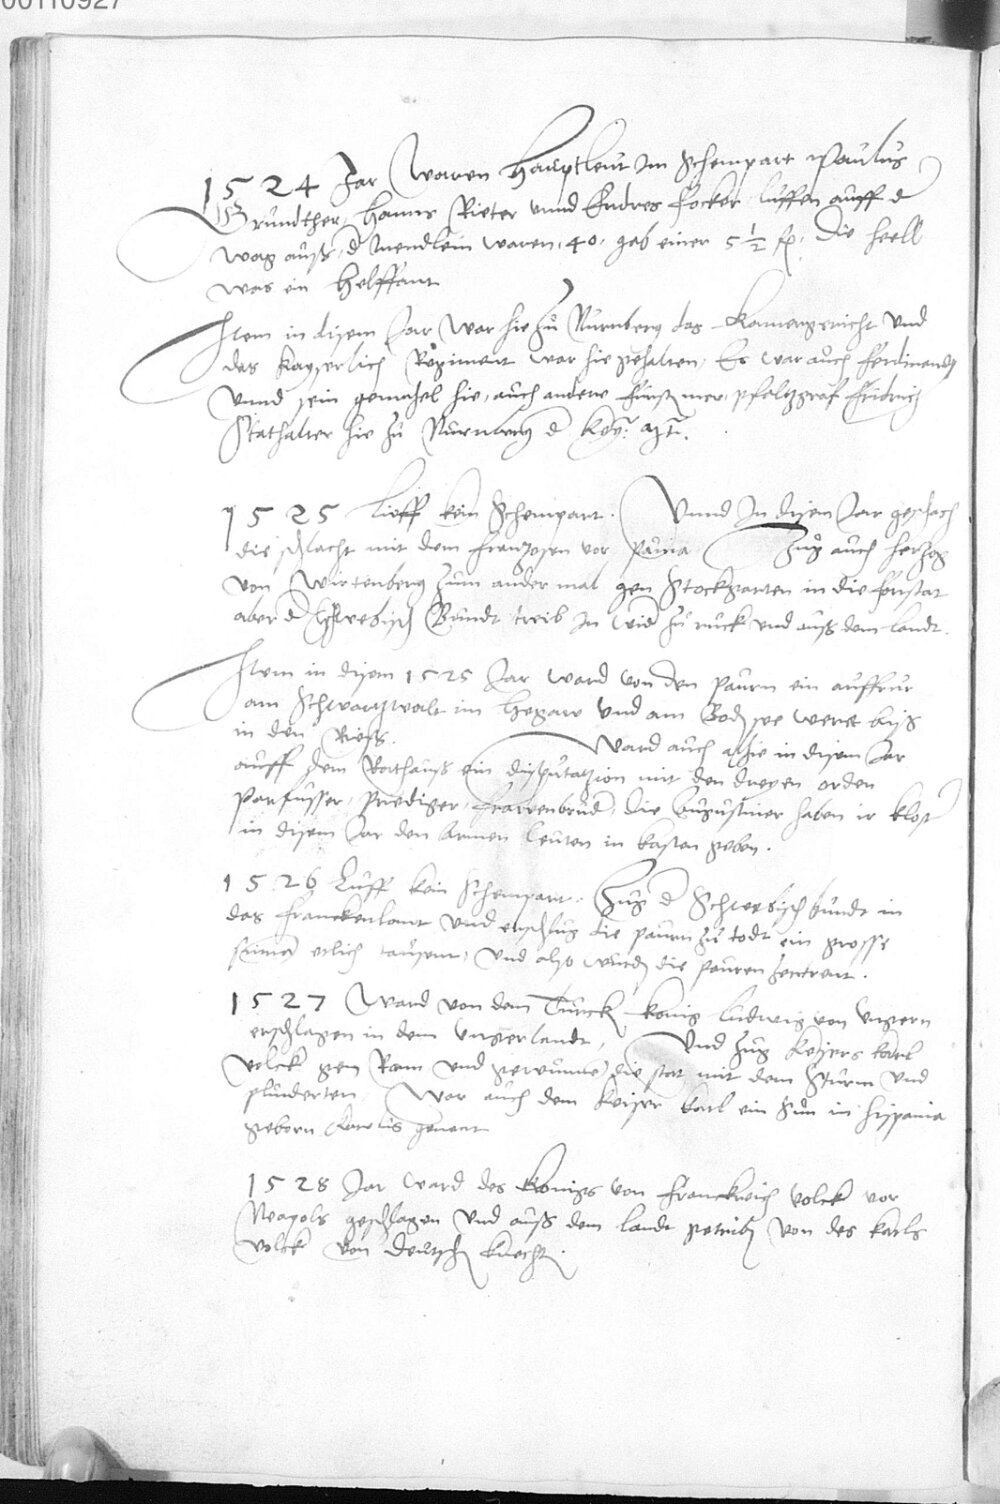 00110927
1524 Jar Waren Hauptleut Im Schempart Paulus
Grundther, Hanns Rieter unnd Endres Focker, luffen auff d
wag auß, d Mendlein waren, 40, gab einer 5 1/2 fl, Die Hell
was ein Helffant
Item in disem Jar War hie zu Nurnberg das Kamergericht Und
das Kayserlich Regiment war hie gehalten, Es war auch Ferdinandg
Unnd sein gemahel hie, auch andere fursten mer, pfaltzgraf Fridrich
Stathalter hie zu Nurnberg d Key: Mt.
1525 Lieff kein Schempart. Unnd In disem Jar geschach
die schlacht mit dem franzosen vor Pauia Zug auch Herzog
von Wirtenberg zum ander mal gen Stockgarten in die forstat
aber d Schwebisch Bundt treib In wid zu ruck und auß dem landt.
Item in disem 1525 Jar ward von den paurn ein auffrur
am Schwartzwalt im Hegaw Und am Bodsee weret biß
in den Rieß. Ward auch alhie in disem Jar
auff dem Rathauß ein disputatzion mit den dreyen orden
Parfusser, Prediger, frawenbrud, Die Augustiner haben ir Klost
in disem Jar den Armen leuten in kasten geben.
1526 Luff kein Schempart. Zug d Schwebisch bundt in
das Franckenlant Und erschlug die paurn zu todt ein grosse
suma etlich tausent, Und also wurd die pauren zertrent.
1527 Ward von dem Turck Konig Ludwig von Ungern
erschlagen in dem Ungerlandt, Und zug Keysers karl
volck gen Rom und gewunne die stat mit dem Sturm und
plunderten War auch dem Keiser karl ein Sun in Hispania
geborn genent
1528 Jar Ward des Konigs von Franckreich volck vor
Neapols geschlagen und auß dem landt getrib von des karls
volck von deutsch knecht.